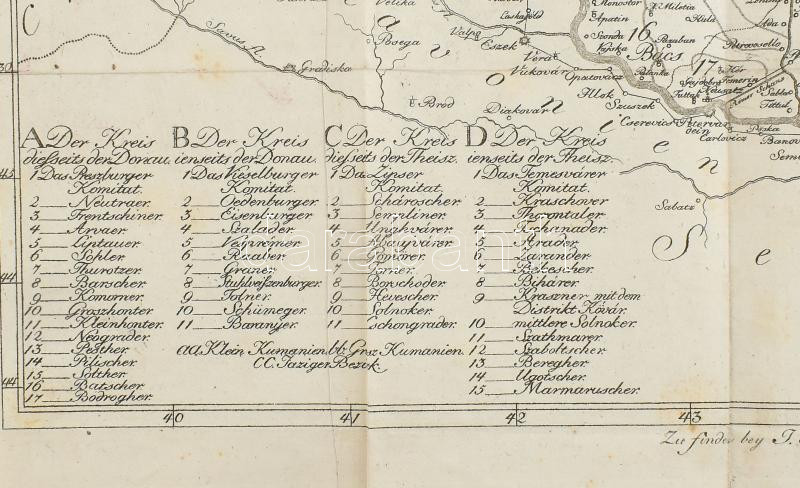 C
Savus fl.
Gradiska
Velika
Posega
Brod
Valpo
Eszek
Laskafeld
Verat
Vukovár
Diakovár
Monostor
Apatin
Szonda
Vajska
Opatovácz
Illok
Szuszek
Cserevics
Militia
16
Bács
Palanka
17
Futtak
Petervar
dein
Carlovicz
Temerin
Neusatz
Petrovosello
Ada
Tittul
Banov
Sabatz
S e
30
45
44
44
A Der Kreis
diesseits der Donau.
1 Das Preszburger
Komitat.
2 Neutraer.
3 Trentschiner.
4 Arvaer.
5 Liptauer.
6 Sohler.
7 Thurotzer.
8 Barscher.
9 Komorner.
10 Groszhonter
11 Kleinhonter.
12 Neograder.
13 Pesther.
14 Pilischer.
15 Solther.
16 Batscher.
17 Bodrogher.
B Der Kreis
ienseits der Donau.
1 Das Wieselburger
Komitat.
2 Oedenburger.
3 Eisenburger
4 Szalader.
5 Vesprimer.
6 Raaber.
7 Graner.
8 Stuhlweiszenburger.
9 Tolner.
10 Schümeger.
11 Baranyer.
C Der Kreis
diesseits der Theisz.
1 Das Zipser
Komitat.
2 Schároscher.
3 Sempliner.
4 Unghvárer.
5 Abauyvárer.
6 Gömörer.
7 Torner.
8 Borschoder.
9 Hevescher.
10 Solnoker.
11 Tschongrader.
D Der Kreis
ienseits der Theisz.
1 Das Temesvárer
Komitat.
2 Kraschover
3 Thorontaler
4 Tschanader.
5 Arader.
6 Zarander.
7 Bekescher.
8 Bihárer.
9 Kraszner mit dem
Distrikt Kövár.
10 mittlere Solnoker.
11 Szathmarer.
12 Szaboltscher.
13 Beregher.
14 Ugotscher.
15 Marmaruscher.
aa. Klein Kumanien. bb. Grosz Kumanien.
CC. Jaziger Bezirk.
40
41
42
43
Zu finden bey J.